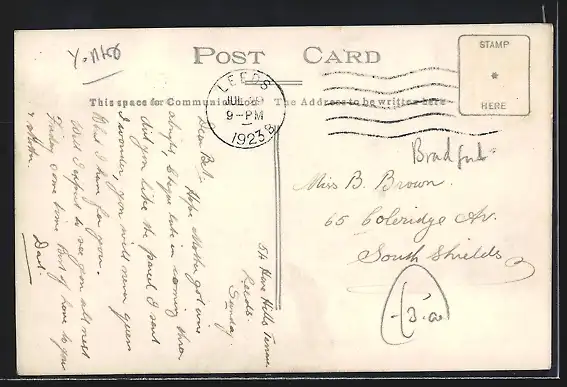 POST CARD
STAMP
HERE
LEEDS
JUL 29
9-PM
1923
This space for Communication
The Address to be written here
Bradford
Miss B. Brown.
65 Coleridge Av.
South Shields
54 Hills Terrace
Leeds.
Sunday.
Dear Bel. Hope Mother got home
alright, & type late in coming there
did you like the parcel I sent
I wonder, you will never guess
What I have for you.
Well I expect to see you all next
Friday some time. Best of love to you
& Mother.
Dad.